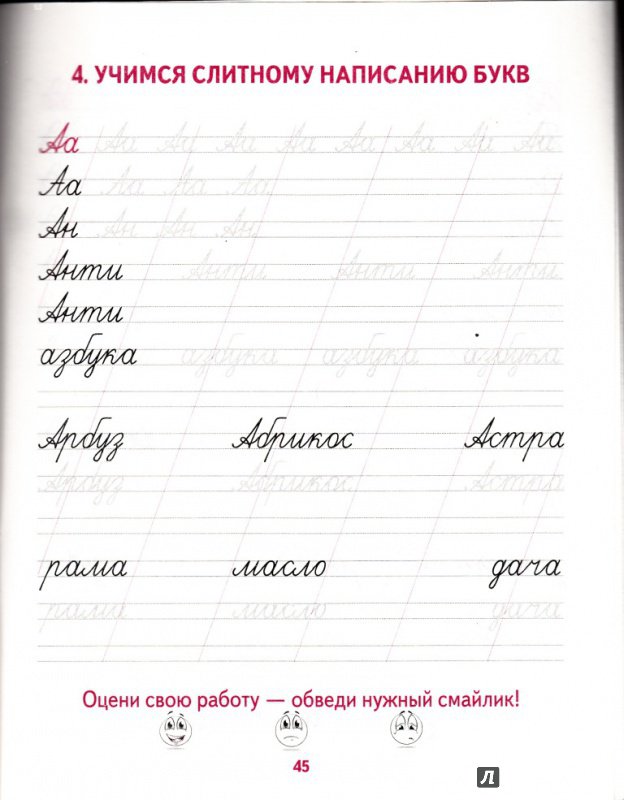 4. УЧИМСЯ СЛИТНОМУ НАПИСАНИЮ БУКВ
Аа Аа Аа Аа Аа Аа Аа Аа Аа
Аа Аа Аа Аа
Ан Ан Ан Ан
Анти Анти Анти Анти
Анти
азбука азбука азбука азбука
Арбуз Абрикос Астра
Арбуз Абрикос Астра
рама масло дача
рама масло дача
Оцени свою работу — обведи нужный смайлик!
45
Л